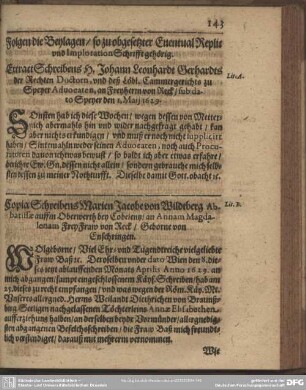 143
Folgen die Beylagen / so zu obgesetzter Eventual Replic
und Imploration Schrifft gehörig.
Extract Schreibens H. Johann Leonhardt Gerhardts
der Rechten Doctorn, und deß Löbl. Cammergerichts zu
Speyer Advocaten, an Freyherrn von Reck / sub da-
to Speyer den 1. Maij 1629.
Lit. A.
SOnsten hab ich diese Wochen / wegen dessen von Metter-
nich abermahls hin und wider nachgefragt gehabt / kan
aber nichts erkundigen / und muß er noch nicht supplicirt
haben / Sintemahln weder seinen Advocaten, noch auch Procu-
ratoren davon ichtwas bewust / so bald ich aber etwas erfahre /
berichte Ew. Gn. dessen nicht allein / sondern gebrauche mich selb-
sten dessen zu meiner Nohtturfft. Dieselbe damit Gott. obacht ꝛc.
Copia Schreibens Marien Jacobe von Wildberg Ab-
batissæ auff m Oberwerth bey Coblentz / an Annam Magda-
lenam FreyFraw von Reck / Geborne von
Enschringen.
Lit. B.
WOlgeborne / Viel Ehr- und Tugendreiche vielgeliebte
Fraw Baß ꝛc. Deroselben under dato Wien den 8. die-
ses jetzt ablauffenden Monats Aprilis Anno 1629. an
mich abgangen / sampt eingeschlossenem Käys. Schreiben / hab am
25. dieses zu recht empfangen / und was wegen der Röm. Käy. May.
Unsers allergned. Herrns Weilandt Dietherichen von Braunß-
berg Seeligen nachgelassenen Töchterleins Anna Elisabethen,
aufferziehung halben / an derselben beyde Vormünder / allergnedig-
sten abgangenen Befelchsschreiben / die Fraw Baß mich freundt-
lich verständiget / darauß mit mehrerm vernommen.
Wie